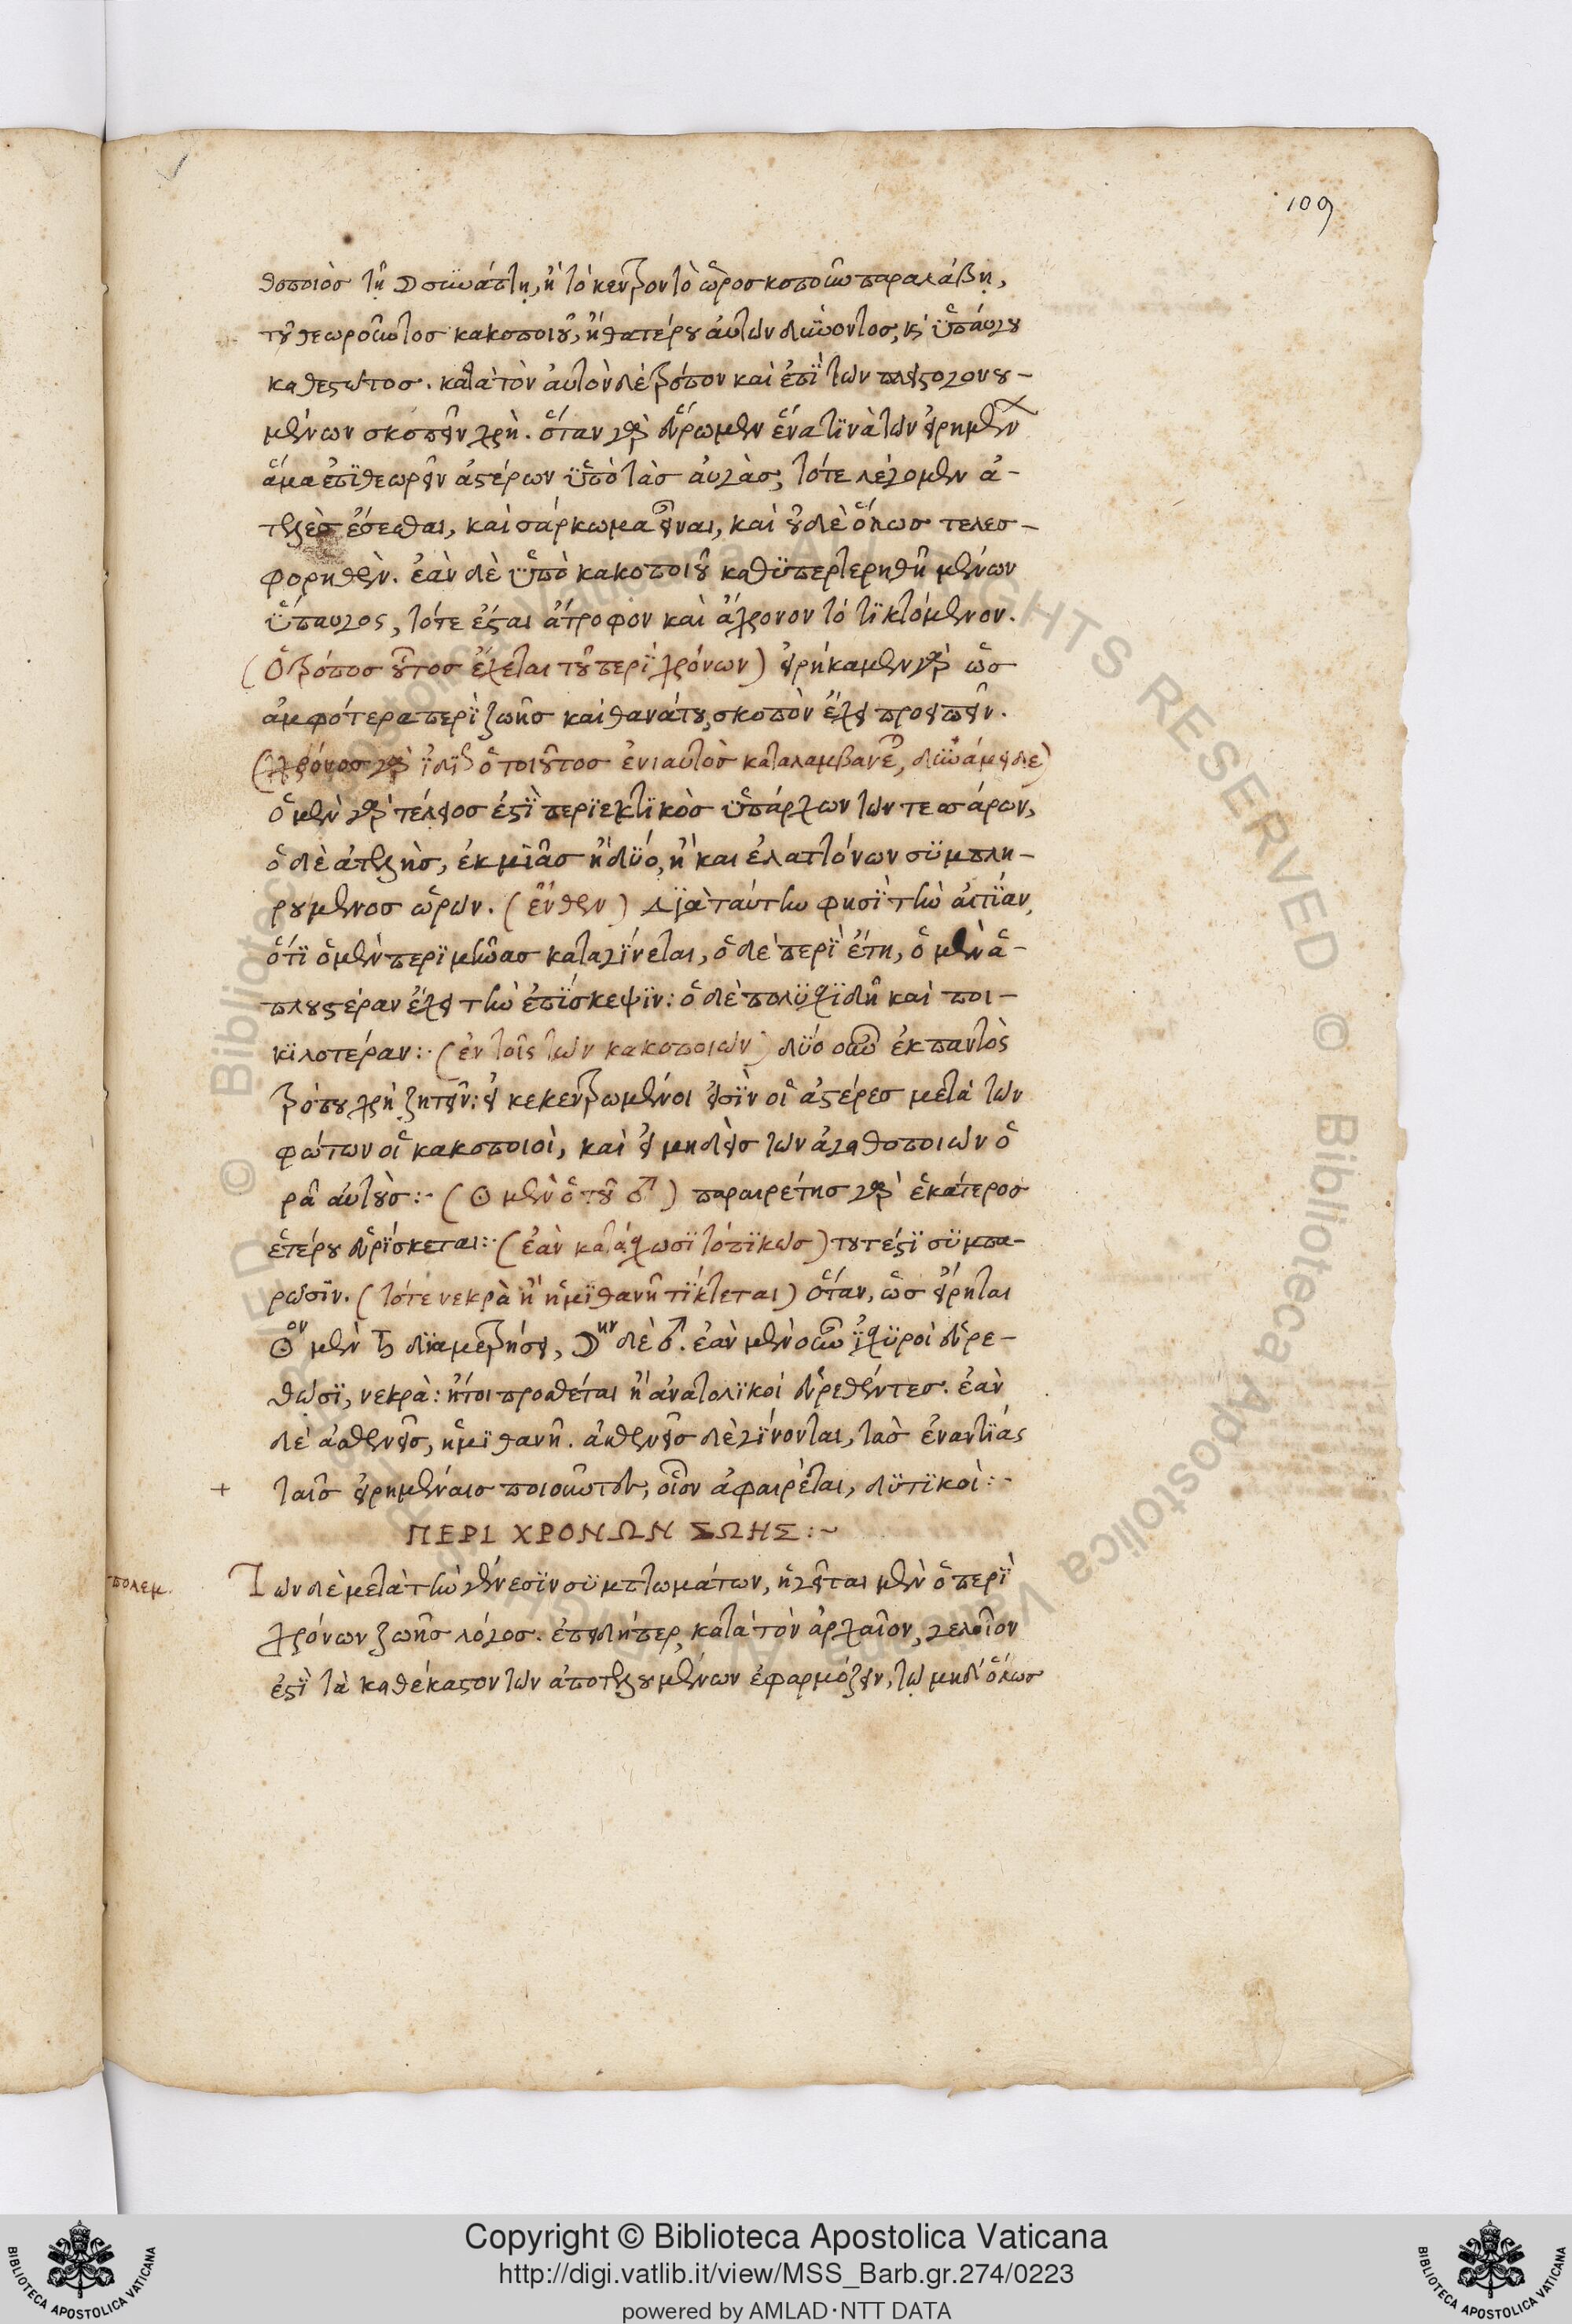 109
θοποιὸσ τῆ ☽ συνάπτῃ, ἢ τὸ κέντρον τὸ ὡροσκοποῦν παραλάβῃ,
τοῦ θεωροῦντοσ κακοποιοῦ, ἢ θατέρου αὐτῶν δύνοντοσ, καὶ ὑπαύγου
καθεστῶτοσ. κατὰ τὸν αὐτὸν δὲ τρόπον καὶ ἐπὶ τῶν πλειστογονου-
μένων σκοπεῖν χρή. ὅταν γὰρ εὕρωμεν ἕνα τινὰ τῶν εἰρημένων
ἅμα ἐπιθεωρεῖν ἀστέρων ὑπὸ τὰσ αὐγὰσ, τότε λέγομεν ἀ-
τελὲσ ἔσεσθαι, καὶ σάρκωμα εἶναι, καὶ οὐδὲ ὅλωσ τελεσ-
φορηθὲν. ἐὰν δὲ ὑπὸ κακοποιοῦ καθυπερτερηθῆ μένων
ὕπαυγος, τότε ἔσται ἄτροφον καὶ ἄχρονον τὸ τικτόμενον.
(ὁ τρόποσ οὗτοσ ἔχεται τοῦ περὶ χρόνων) εἰρήκαμεν γὰρ ὡσ
ἀμφότερα περὶ ζωῆσ καὶ θανάτου, σκοπὸν ἔχει προειπεῖν.
ὁ μὲν γὰρ τέλειοσ ἐστὶ περιεκτικὸσ ὑπάρχων τῶν τεσσάρων,
ὁ δὲ ἀτελὴσ, ἐκ μιᾶσ ἢ δύο, ἢ και ἐλαττόνων συμπλη-
ρουμενοσ ὡρῶν. (ἔνθεν) διὰ ταύτην φησὶ τὴν αἰτίαν,
ὅτι ὁ μὲν περὶ μῆνασ καταγίνεται, ὁ δὲ περὶ ἔτη, ὁ μὲν ἁ-
πλουστέραν ἔχει τὴν ἐπίσκεψιν: ὁ δὲ πολυσχιδῆ καὶ ποι-
κιλοτέραν:· (ἐν τοῖς τῶν κακοποιῶν) δύο οὖν ἐκ παντὸς
τρόπου χρὴ ζητεῖν: εἰ κεκεντρωμένοι εἰσὶν οἱ ἀστέρεσ μετὰ τῶν
φώτων οἱ κακοποιοὶ, καὶ εἰ μηδεὶσ τῶν ἀγαθοποιῶν ὁ
ρᾶ αὐτοὺσ:· (☉ μὲν ὁ τοῦ ♂) παραιρέτησ γὰρ ἑκάτεροσ
ἑτέρου εὑρίσκεται:· (ἐὰν κατάσχωσι τοπικῶσ) τουτέστι συμπα-
ρῶσιν. (τότε νεκρὰ ἢ ἡμιθανῆ τίκτεται) ὅταν, ὡσ εἴρηται
☉ον μὲν ♄ διαμετρήσει, ☽ην δὲ ♂. ἐὰν μὲν οὖν ἰσχυροὶ εὑρε-
θῶσι, νεκρὰ: ἤτοι προσθέται ἢ ἀνατολικοὶ εὑρεθέντεσ. ἐὰν
δὲ ἀσθενεῖσ, ἡμιθανῆ. ἀσθενεῖσ δὲ γίνονται, τὰσ ἐναντίας
ταῖσ εἰρημέναισ ποιοῦντες, οἷον ἀφαιρέται, δυτικοὶ:·
ΠΕΡΙ ΧΡΟΝΩΝ ΖΩΗΣ:~
πολεμ.
Τῶν δὲ μετὰ τὴν γένεσιν συμπτωμάτων, ἡγεῖται μὲν ὁ περὶ
χρόνων ζωῆσ λόγοσ. ἐπειδήπερ, κατὰ τὸν ἀρχαῖον, γελοῖον
ἐστὶ τὰ καθέκαστον τῶν ἀποτελουμένων ἐφαρμόζειν, τῷ μηδ' ὅλωσ
Copyright © Biblioteca Apostolica Vaticana
http://digi.vatlib.it/view/MSS_Barb.gr.274/0223
powered by AMLAD·NTT DATA
BIBLIOTECA APOSTOLICA VATICANA
BIBLIOTECA APOSTOLICA VATICANA